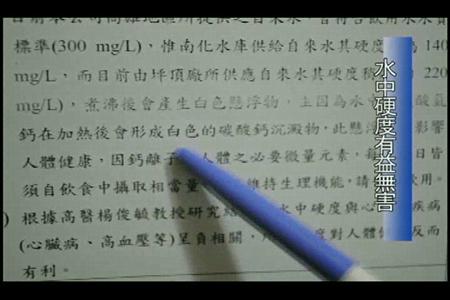 目前本公司高雄地區所提供之自來水,皆符合飲用水水質
標準(300 mg/L),惟南化水庫供給自來水其硬度 為 140
mg/L,而目前由坪頂廠所供應自來水其硬度 220
mg/L),煮沸後會產生白色懸浮物,主因為水 酸氫
鈣在加熱後會形成白色的碳酸鈣沉澱物,此懸 影響
人體健康,因鈣離子 人體之必要微量元素,每 日皆
須自飲食中攝取相當量 維持生理機能,請 飲用。
根據高醫楊俊毓教授研究結 水中硬度與心 疾病
(心臟病、高血壓等)呈負相關, 度對人體健 反而
有利。
水中硬度有益無害